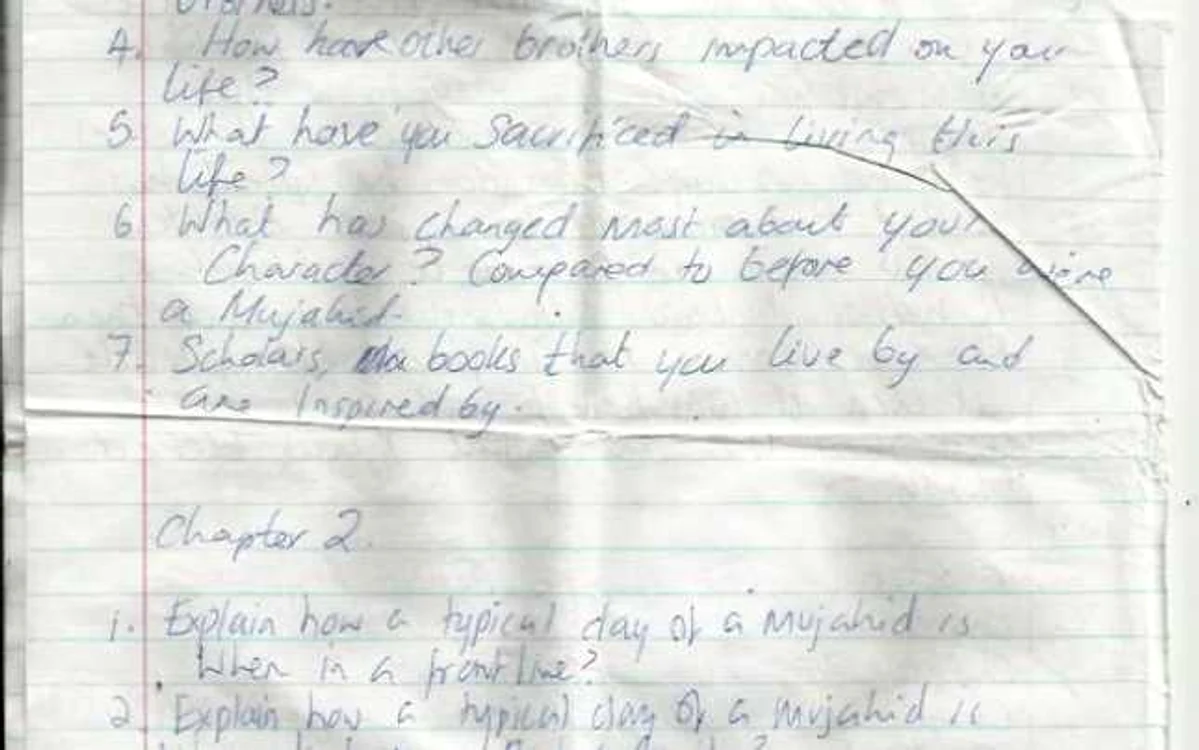 4. How have other brothers impacted on your
life?
5. What have you Sacrificed in living this
life?
6 What has changed most about your
Character? Compared to before you were
a Mujahid.
7. Scholars, books that you live by and
are Inspired by.
Chapter 2.
1. Explain how a typical day of a Mujahid is
When in a frontline?
2. Explain how a typical day of a mujahid is